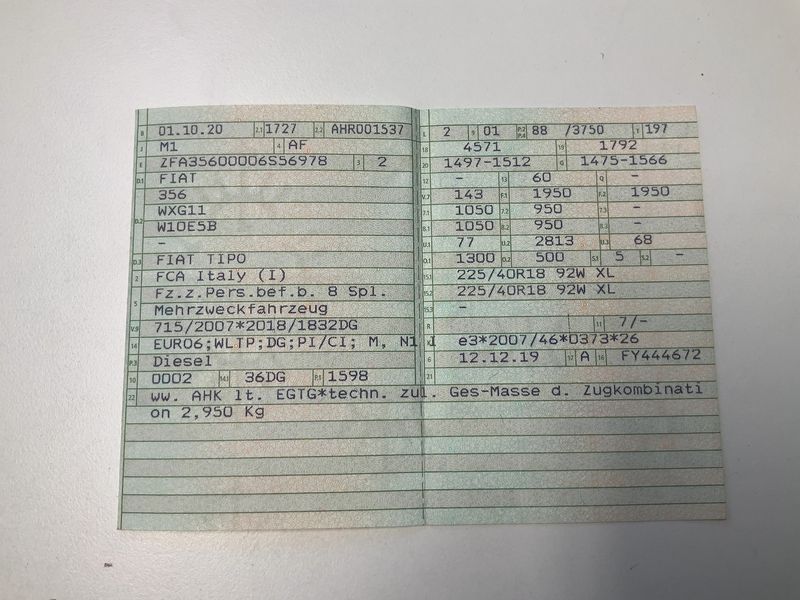 B 01.10.20 2.1 1727 2.2 AHR001537
J M1 4 AF
E ZFA35600006S56978 3 2
D.1 FIAT
356
D.2 WXG11
W10E5B
-
D.3 FIAT TIPO
2 FCA Italy (I)
5 Fz.z.Pers.bef.b. 8 Spl.
Mehrzweckfahrzeug
V.9 715/2007*2018/1832DG
14 EURO6;WLTP;DG;PI/CI; M, N1 I
P.3 Diesel
10 0002 14.1 36DG P.1 1598
22 ww. AHK lt. EGTG*techn. zul. Ges-Masse d. Zugkombinati
on 2,950 Kg
L 2 9 01 P.2 P.4 88 /3750 T 197
18 4571 19 1792
20 1497-1512 G 1475-1566
12 - 13 60 Q -
V.7 143 F.1 1950 F.2 1950
7.1 1050 7.2 950 7.3 -
8.1 1050 8.2 950 8.3 -
U.1 77 U.2 2813 U.3 68
O.1 1300 O.2 500 S.1 5 S.2 -
15.1 225/40R18 92W XL
15.2 225/40R18 92W XL
15.3 -
R 11 7/-
K e3*2007/46*0373*26
6 12.12.19 17 A 16 FY444672
21